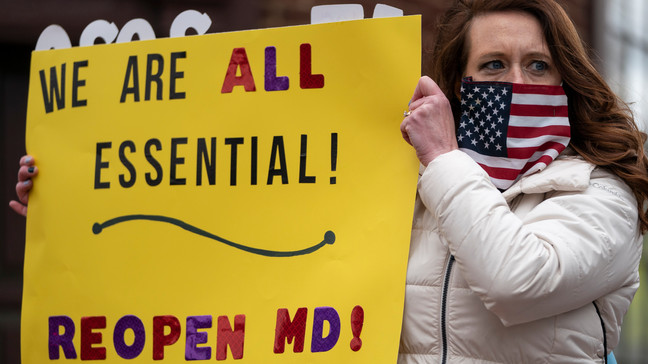 WE ARE ALL
ESSENTIAL!
REOPEN MD!